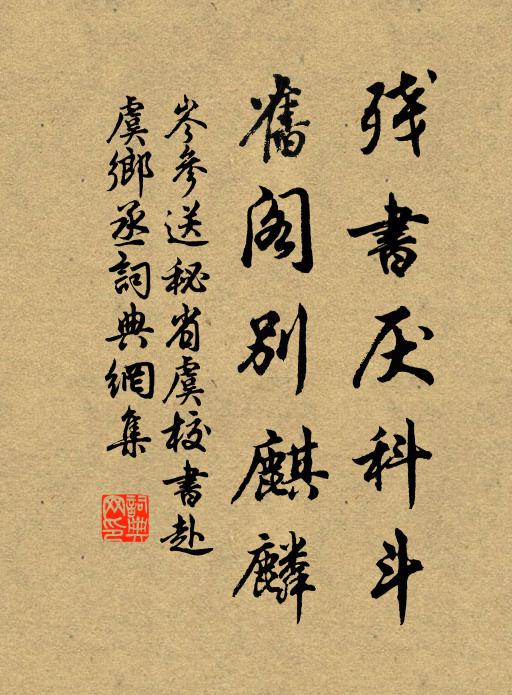 残书厌科斗
舊阁别麒麟
岑参送秘省虞校书赴
虞鄉丞詞典網集
詞典网印